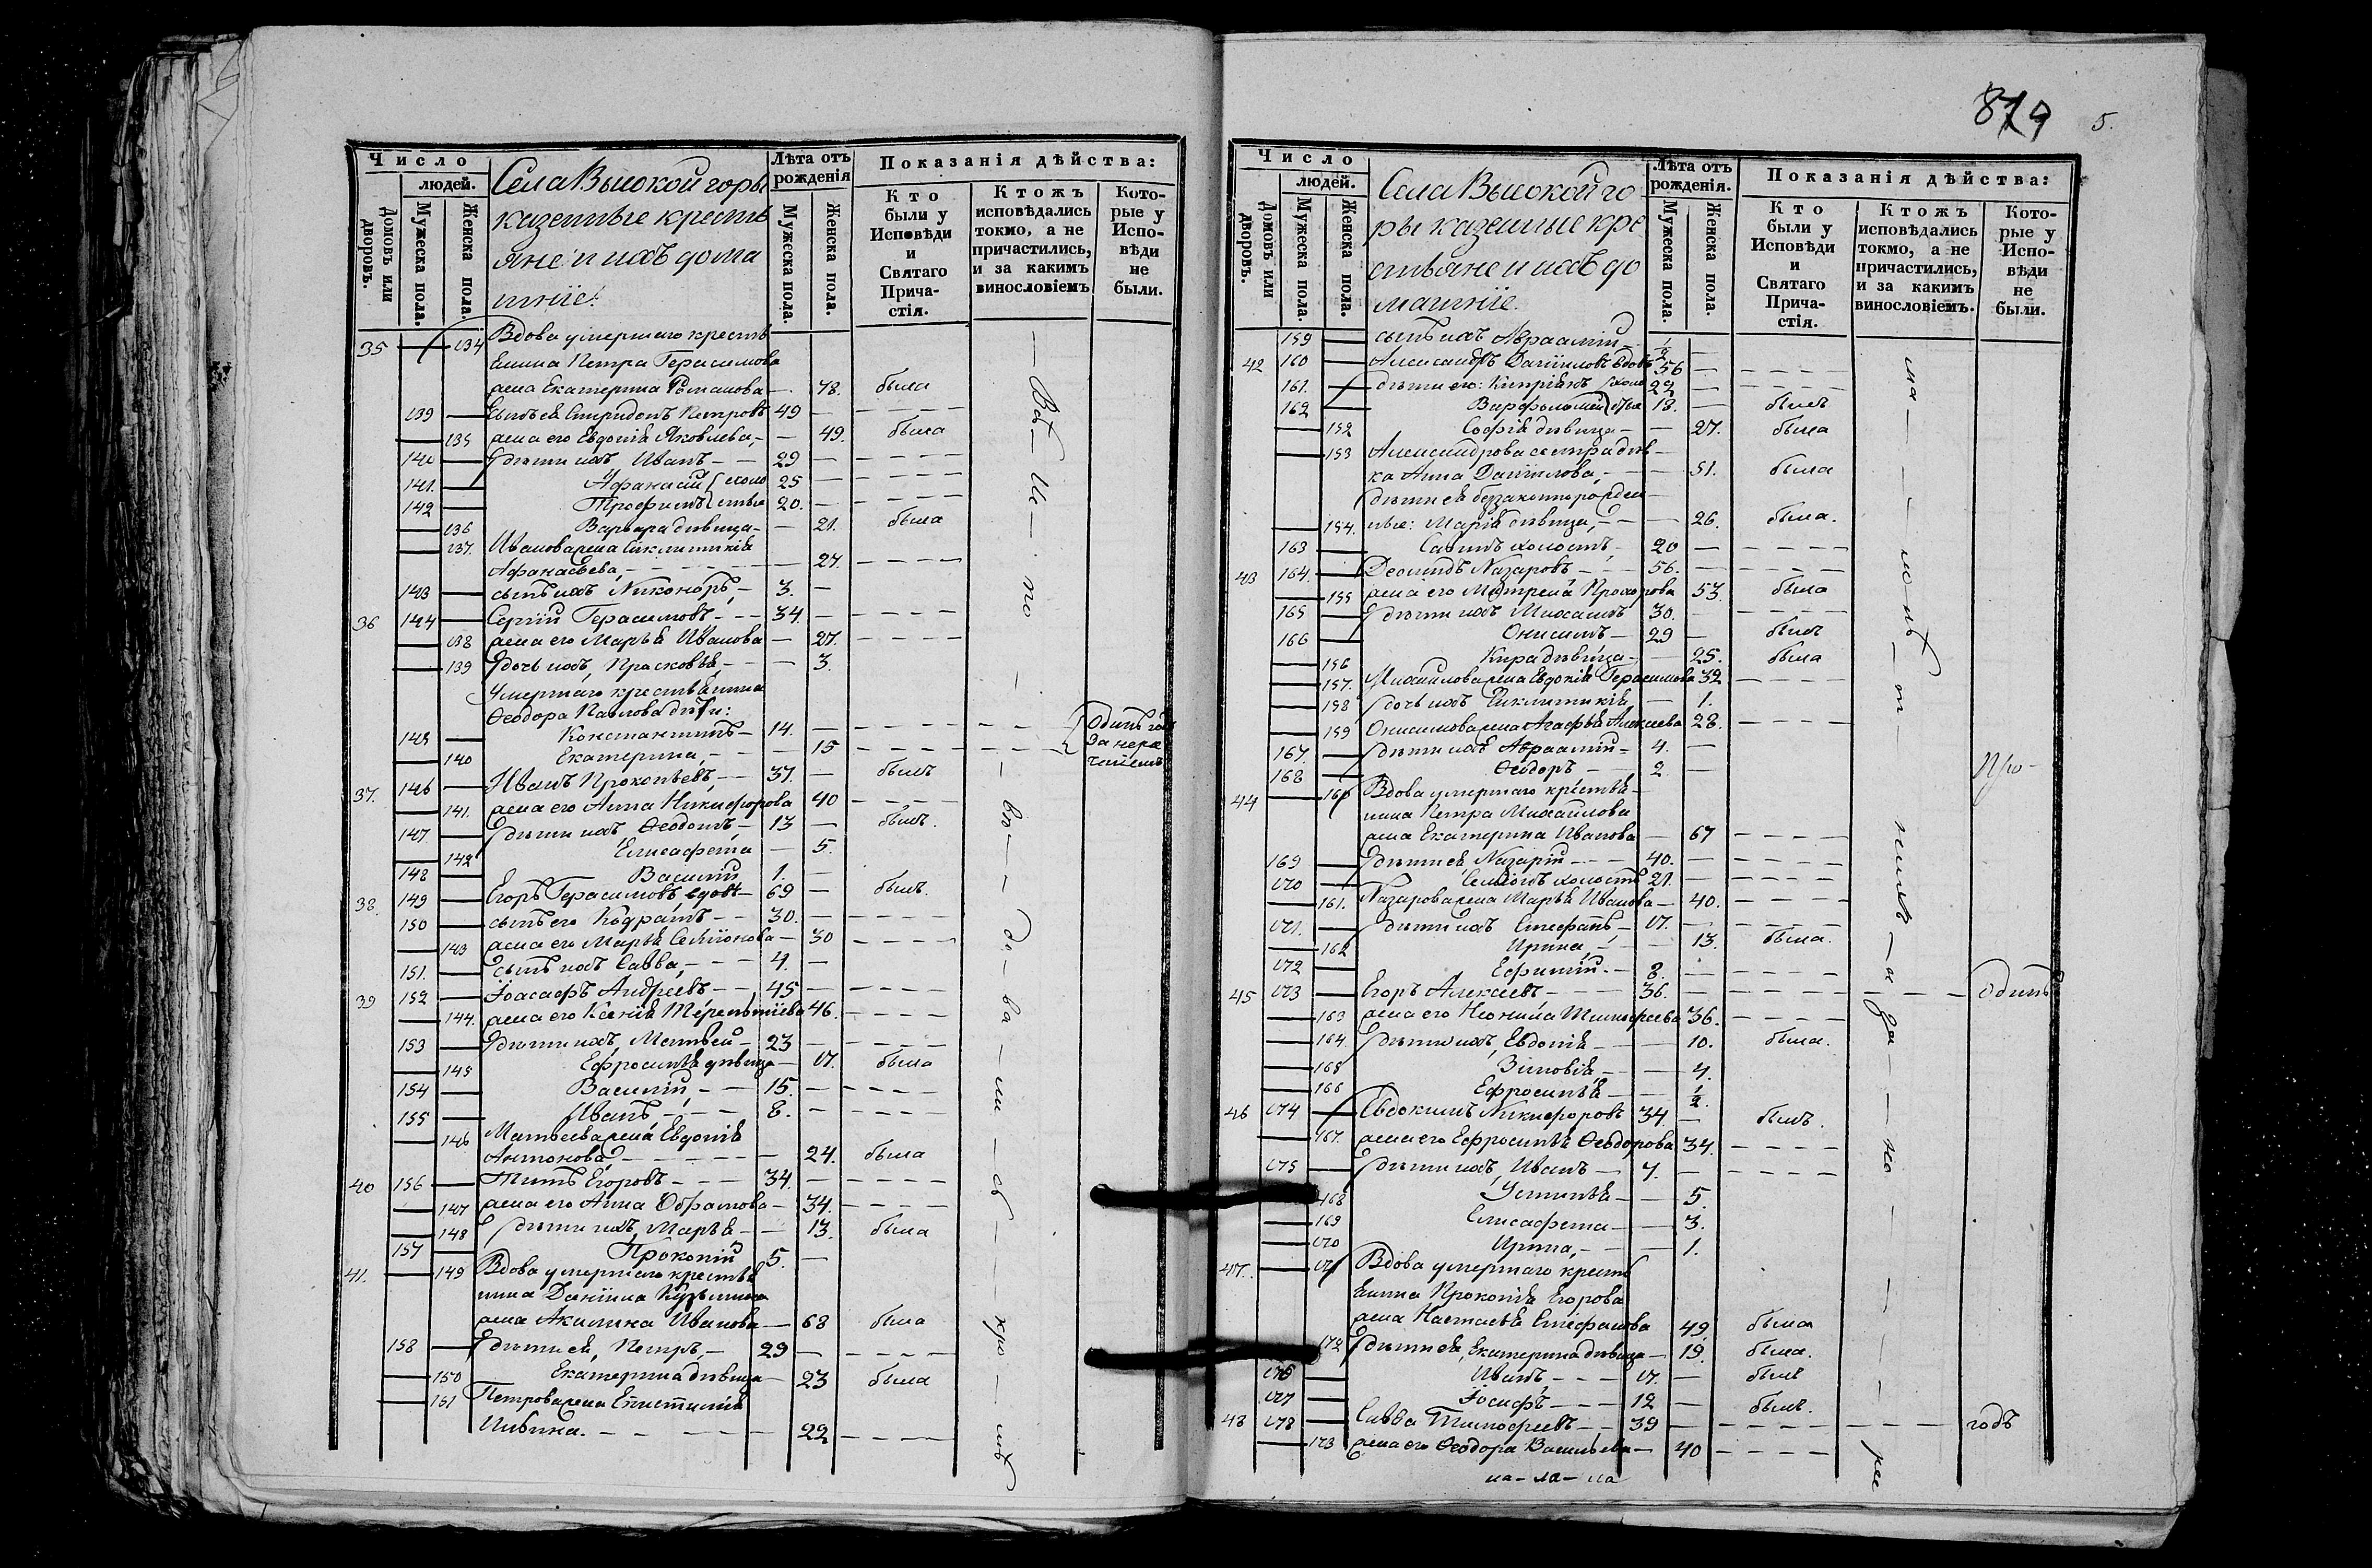 879 5.
Число
людей.
Домовъ или дворовъ.
Мужеска пола.
Женска пола.
Села Высокой горы
казенные кресть
яне и ихъ дома
шніе:
Лѣта отъ рожденія
Мужеска пола.
Женска пола.
Показанія дѣйства:
Кто были у Исповѣди и Святаго Прича-стія.
Ктожъ исповѣдались токмо, а не причастились, и за какимъ винословіемъ
Кото-рые у Испо-вѣди не были.
35 — 134 Вдова умершаго кресть
янина Петра Герасимова
жена Екатерина Романова — 78. была
139 — сынъ ея Спиридонъ Петровъ 49 —
— 135 жена его Евдокія Яковлева, — 49. была
140 — дѣти ихъ Иванъ — 29 —
141. — Афанасій 25 —
142 — Трофимъ 20. —
холостые
— 136 Варвара дѣвица — 21. была
— 137. Иванова жена Сиклитикія
Афанасьева, — 27.
143 — сынъ ихъ Никоноръ, — 3. —
36 144 — Сергій Герасимовъ — 34. —
— 138 жена его Марья Иванова — 27.
— 139 дочь ихъ, Прасковья, — 3.
Умершаго крестьянина
Ѳеодора Павлова дѣти:
145 — Константинъ — 14. —
— 140 Екатерина, — 15
Одинъ годъ
за нера
37. 146 — Иванъ Прокопьевъ, — 37. — былъ
— 141. жена его Анна Никифорова 40
147 — дѣти ихъ, Ѳеодотъ, — 13 — былъ.
— 142 Елисафета — 5.
148 — Василій 1. —
38. 149 — Егоръ Герасимовъ вдовъ — 69 — былъ.
150 — сынъ его Кодратъ — 30. —
— 143 жена его Марья Семіонова — 30
151. — сынъ ихъ Савва, — 4. —
39 152 — Іоасафъ Андреевъ — 45 —
— 144. жена его Ксенія Терентіева 46.
153 — дѣти ихъ, Матвей — 23 —
— 145 Ефросинья дѣвица — 17. была
154 — Василій, — 15. —
155 — Иванъ — 8. —
— 146 Матвеева жена Евдокія
Антонова — 24. была
40 156 — Титъ Егоровъ — 34. —
— 147 жена его Анна Ефрамова — 34.
— 148 дѣти ихъ, Марья — 13. была
157 — Прокопій 5. —
41. — 149 Вдова умершаго крестья
нина Даніила Кузьмина
жена Акилина Иванова — 68 была
158 — дѣти ея, Петръ, — 29 —
— 150 Екатерина дѣвица — 23 была
— 151 Петрова жена Епистимія
Ильина. — 22
Число
людей.
Домовъ или дворовъ.
Мужеска пола.
Женска пола.
Села Высокой го
ры казенные кре
стьяне и ихъ до
машніе.
Лѣта отъ рожденія.
Мужеска пола.
Женска пола.
Показанія дѣйства:
Кто были у Исповѣди и Святаго Прича-стія.
Ктожъ исповѣдались токмо, а не причастились, и за какимъ винословіемъ.
Кото-рые у Испо-вѣди не были.
159 — сынъ ихъ Авраамій — 1/2 —
42 160 — Александръ Даніиловъ вдовъ 56 —
161. — дѣти его: Кипріянъ 22 —
162 — Варфоломей 18. — былъ
холостые
— 152 Софія дѣвица — 27. была
— 153 Александрова сестра дѣв
ка Анна Даніилова, — 51. была
дѣти ея беззаконнорожден
— 154. ные: Марія дѣвица, — 26. была.
163 — Савинъ холостъ, 20 —
43 164. — Деомидъ Назаровъ — 56. —
— 155 жена его Матрена Прохорова 53. была
165 — дѣти ихъ Михаилъ 30. —
166 — Онисимъ — 29 — былъ
— 156 Кира дѣвица — 25. была
— 157. Михаилова жена Евдокія Герасимова 32
— 158 дочь ихъ Сиклитикія, — 1.
— 159 Онисимова жена Агафья Алексеева 28.
167. — дѣти ихъ Авраамій — 4. —
168 — Ѳеодоръ — 2 —
Про-
44 — 160 Вдова умершаго крестья
нина Петра Михаилова
жена Екатерина Иванова — 67
169 — дѣти ея, Назарій — 40. —
170 — Семіонъ холостъ 21. —
— 161. Назарова жена Марья Иванова — 40.
171. — дѣти ихъ Стефанъ, — 17. —
— 162 Ирина, — 13. была.
172 — Ефимій. — 8. —
45 173 — Егоръ Алексеевъ — 36. — Одинъ
— 163 жена его Неонила Тимофеева 36.
— 164. дѣти ихъ, Евдокія — 10. была.
— 165 Зиновія, — 4.
— 166 Ефросинья — 1/2.
46 174 — Евдокимъ Никифоровъ 34. — былъ.
— 167. жена его Ефросинья Ѳеодорова 34.
175 — дѣти ихъ, Иванъ — 7. —
168 Устинья — 5.
— 169 Елисафета — 3.
— 170 Ирина, — 1.
47. — 171 Вдова умершаго кресть
янина Прокопія Егорова
жена Настасья Стефанова 49. была
172 дѣти ея, Екатерина дѣвица — 19. была.
176 — Иванъ, — 17. — былъ
177 — Іосифъ — 12 — былъ.
48 178 — Савва Тимофеевъ — 39 — годъ
— 173 жена его Ѳеодора Васильева — 40